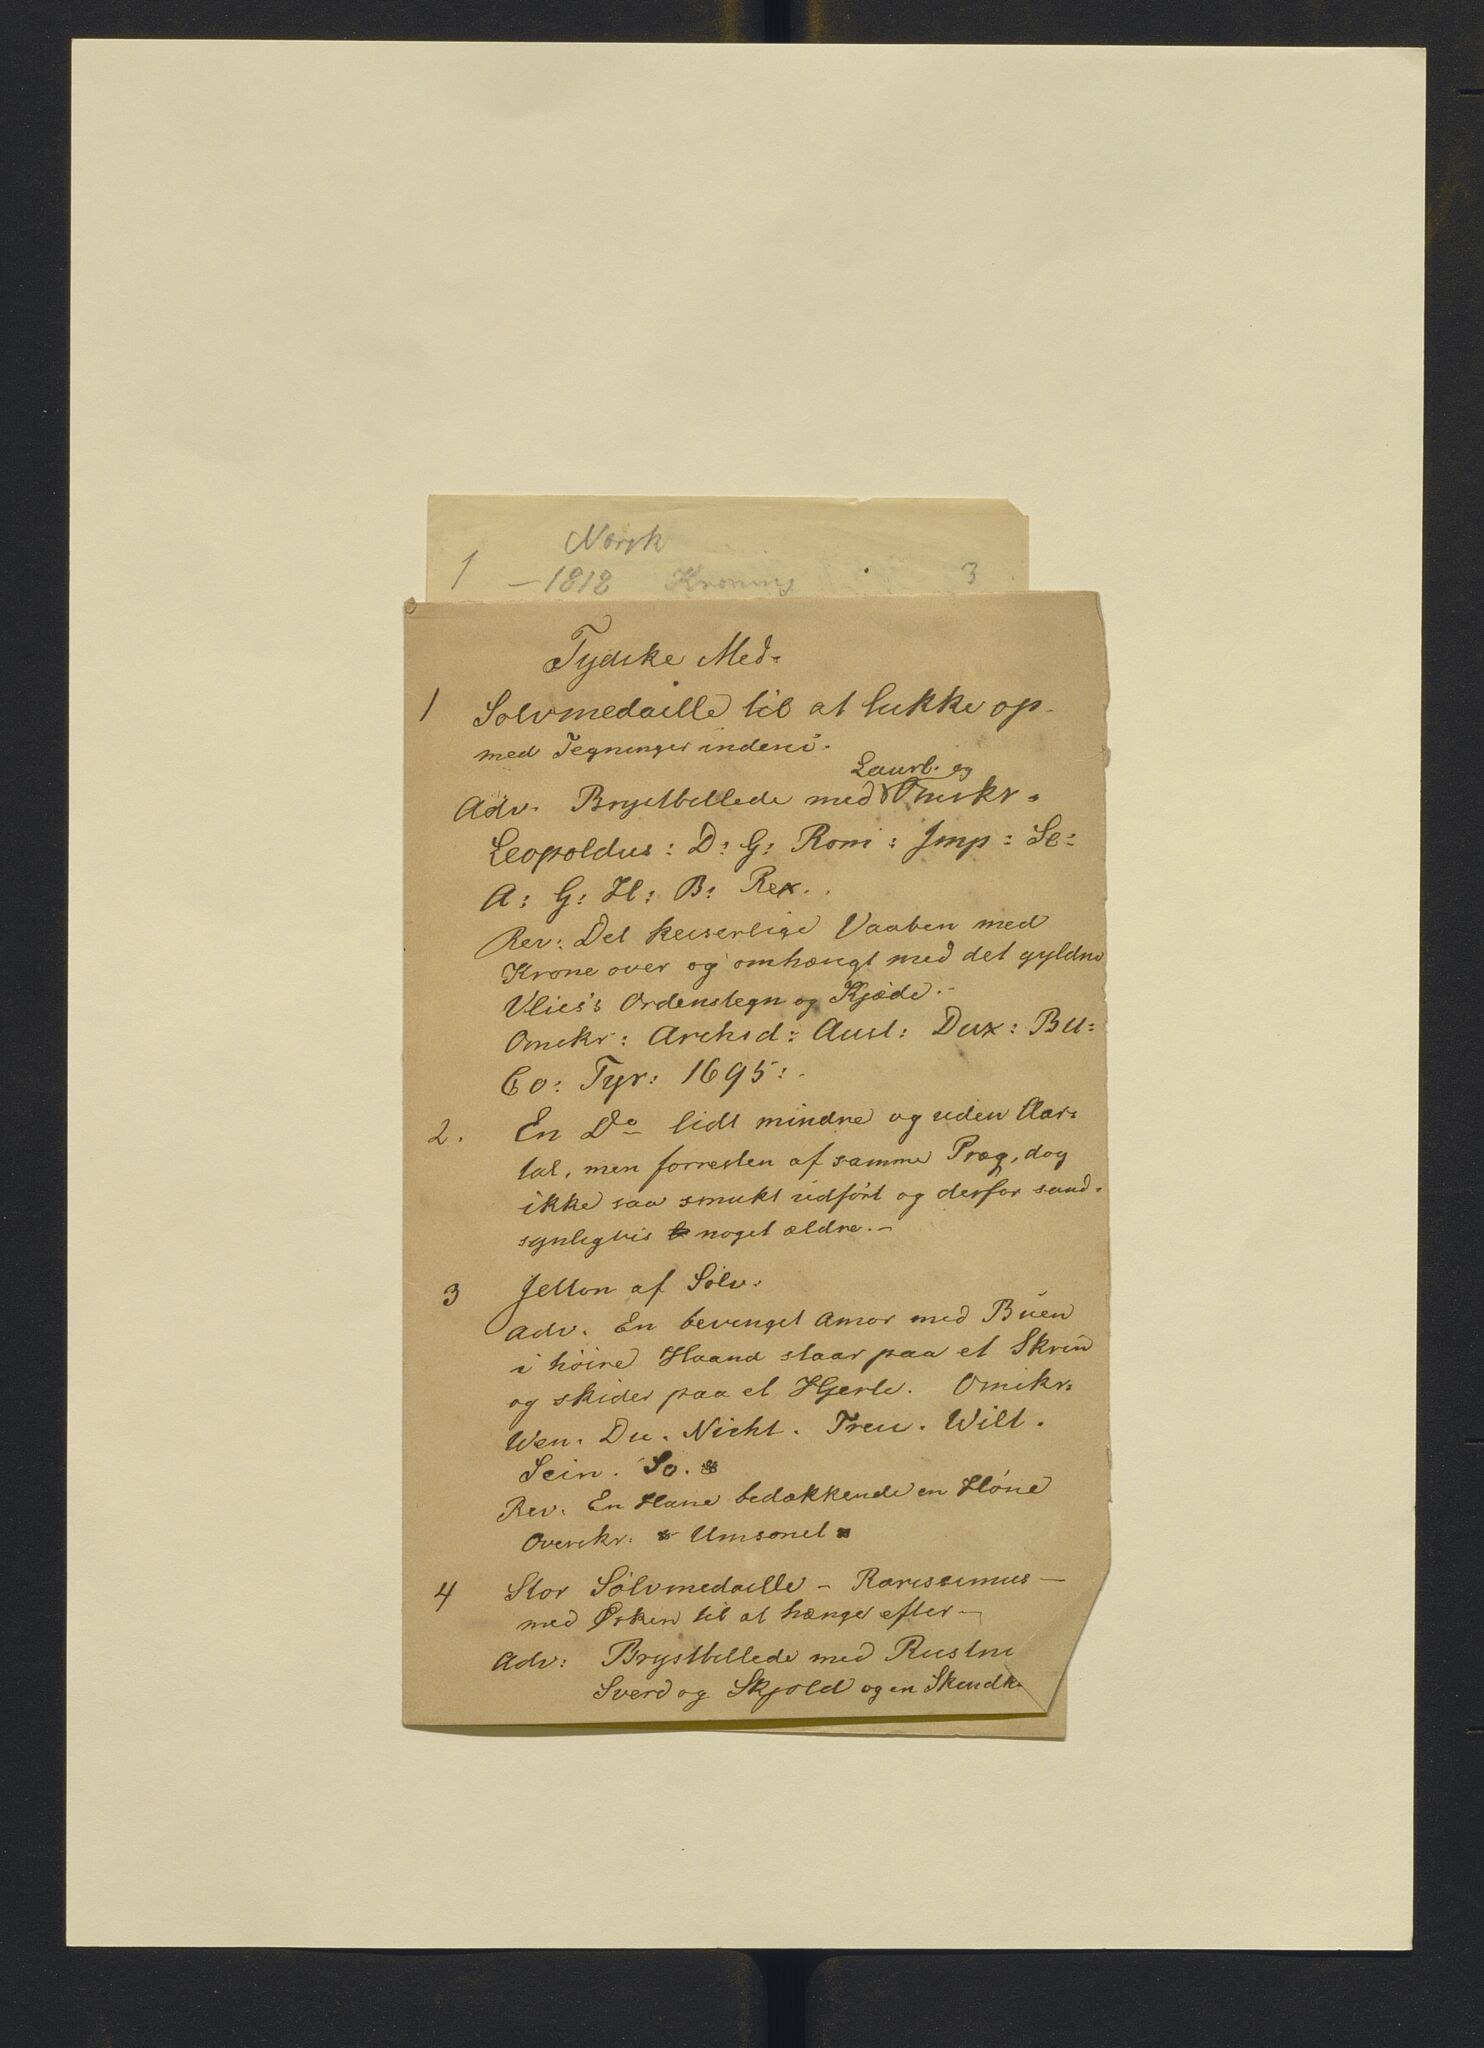 Norsk
1 — 1818 Kroning 3
Tydske Med.
1 Sølvmedaille til at lukke op
med Tegninger indeni.
Laurb. og
Adv. Brystbillede med Omskr.
Leopoldus: D: G: Rom: Imp: Se:
A: G: H: B: Rex.
Rev: Det keiserlige Vaaben med
Krone over og omhængt med det gyldne
Vlies's Ordenstegn og Kjæde.-
Omskr: Archid: Aust: Dux: Bu:
Co: Tyr: 1695:
2. En Do lidt mindre og uden Aar=
tal, men forresten af samme Præg, dog
ikke saa smukt udført og derfor sand=
synligvis noget ældre.-
3 Jetton af Sølv.
Adv. En bevinget Amor med Buen
i høire Haand staar paa et Skrin
og skider paa et Hjerte. Omskr:
Wen. Du. Nicht. Treu. Wilt.
Sein. So. *
Rev. En Hane bedækkende en Høne
Overskr: * Umsonst *
4 Stor Sølvmedaille - Rarissimus -
med Øsken til at hænge efter-
Adv: Brystbillede med Rustni
Sverd og Skjold og en